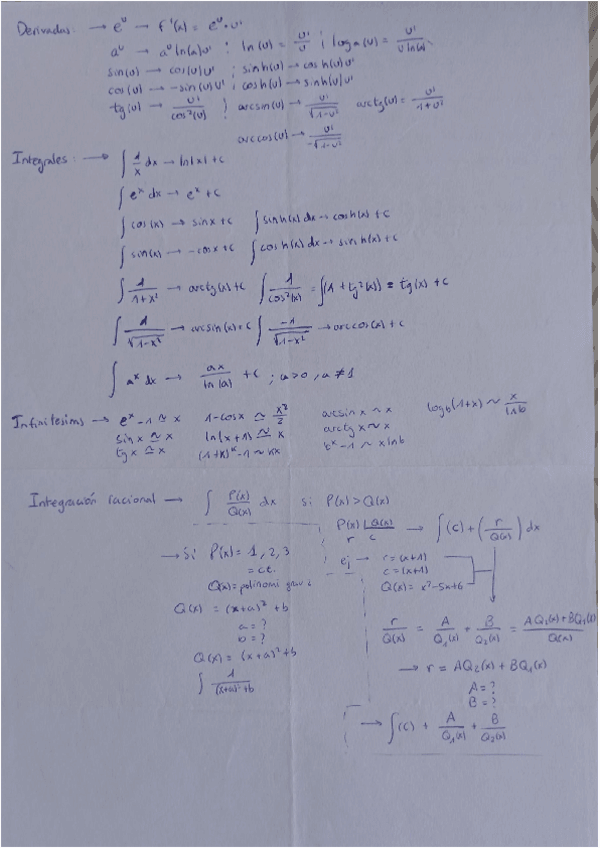 Derivadas: → e^u → f'(x) = e^u · u'
a^u → a^u ln(a) u' ; ln(u) = u'/u ; log a(u) = u'/(u ln(a))
sin(u) → cos(u) u' ; sinh(u) → cosh(u) u'
cos(u) → -sin(u) u' ; cosh(u) → sinh(u) u'
tg(u) → u'/cos²(u) ; arcsin(u) → u'/√(1-u²) arctg(u) = u'/(1+u²)
arccos(u) → u'/-√(1-u²)
Integrales: → ∫ 1/x dx → ln|x| + c
∫ e^x dx → e^x + c
∫ cos(x) → sinx + c ∫ sinh(x) dx → cosh(x) + c
∫ sin(x) → -cosx + c ∫ cosh(x) dx → sinh(x) + c
∫ 1/(1+x²) → arctg(x) + c ∫ 1/cos²(x) = ∫(1 + tg²(x)) = tg(x) + c
∫ 1/√(1-x²) → arcsin(x) + c ∫ -1/√(1-x²) → arccos(x) + c
∫ a^x dx → ax/ln(a) + c ; a>0, a≠1
Infinitesims → e^x - 1 ≃ x 1-cosx ≃ x²/2 arcsinx ~ x logb(1+x) ~ x/lnb
sinx ≃ x ln(x+1) ≃ x arctgx ~ x
tgx ≃ x (1+x)^k - 1 ~ kx b^x - 1 ~ x lnb
Integración racional → ∫ P(x)/Q(x) dx si P(x) > Q(x)
P(x) |Q(x) → ∫(c) + (r/Q(x)) dx
r c
→ Si P(x) = 1, 2, 3
= ct.
ej → r = (x+1)
c = (x+1)
Q(x) = polinomi grau 2
Q(x) = x²-5x+6
Q(x) = (x+a)² + b
a = ?
b = ?
r/Q(x) = A/Q₁(x) + B/Q₂(x) = AQ₂(x)+BQ₁(x)/Q(x)
Q(x) = (x+a)² + b
→ r = AQ₂(x) + BQ₁(x)
∫ 1/((x+a)²+b)
A = ?
B = ?
→ ∫(c) + A/Q₁(x) + B/Q₂(x)